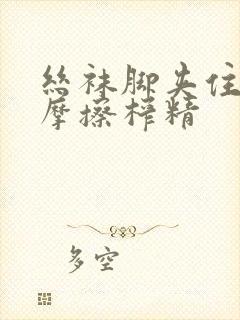 丝袜脚夹住
摩擦榨精
多空